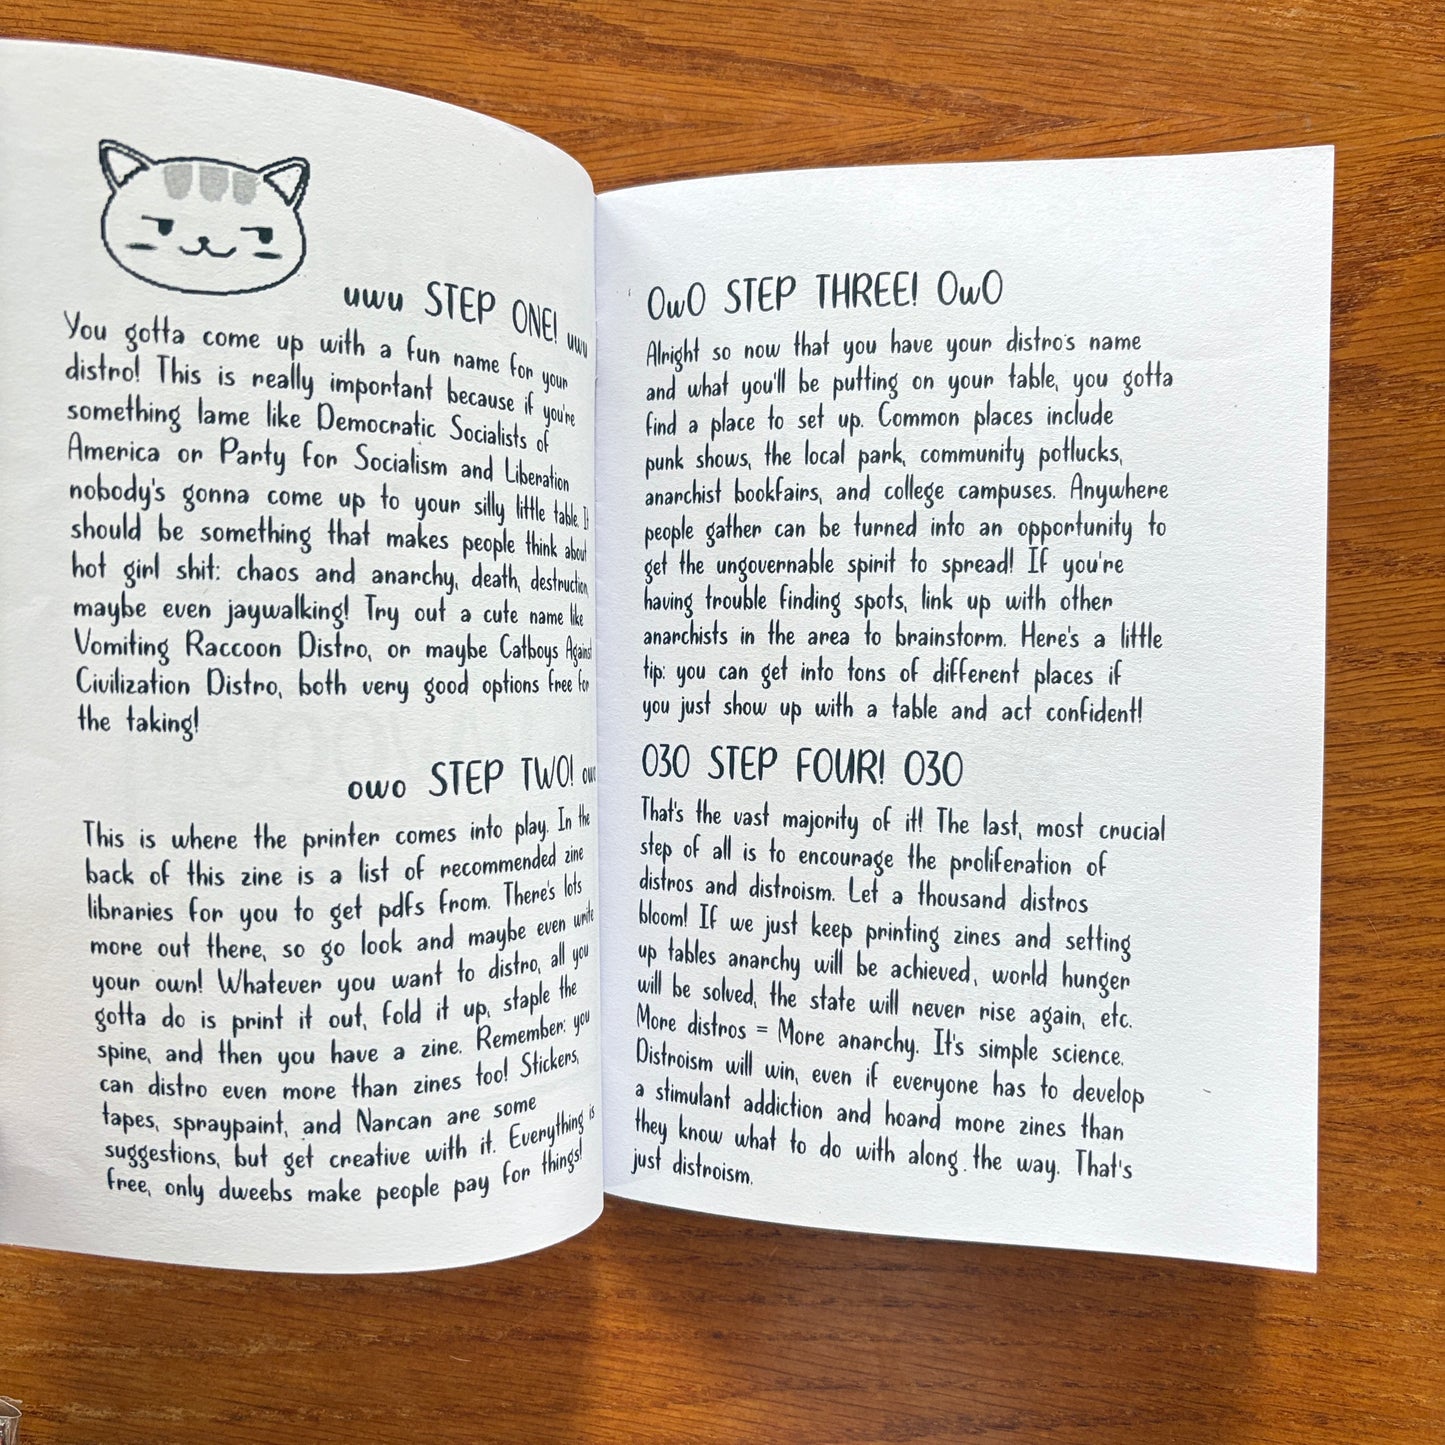 uwu STEP ONE! uwu
You gotta come up with a fun name for your
distro! This is really important because if you're
something lame like Democratic Socialists of
America or Party for Socialism and Liberation
nobody's gonna come up to your silly little table. It
should be something that makes people think about
hot girl shit: chaos and anarchy, death, destruction,
maybe even jaywalking! Try out a cute name like
Vomiting Raccoon Distro, or maybe Catboys Against
Civilization Distro, both very good options free for
the taking!
owo STEP TWO! owo
This is where the printer comes into play. In the
back of this zine is a list of recommended zine
libraries for you to get pdfs from. There's lots
more out there, so go look and maybe even write
your own! Whatever you want to distro, all you
gotta do is print it out, fold it up, staple the
spine, and then you have a zine. Remember: you
can distro even more than zines too! Stickers,
tapes, spraypaint, and Narcan are some
suggestions, but get creative with it. Everything is
free, only dweebs make people pay for things!
OwO STEP THREE! OwO
Alright so now that you have your distro's name
and what you'll be putting on your table, you gotta
find a place to set up. Common places include
punk shows, the local park, community potlucks,
anarchist bookfairs, and college campuses. Anywhere
people gather can be turned into an opportunity to
get the ungovernable spirit to spread! If you're
having trouble finding spots, link up with other
anarchists in the area to brainstorm. Here's a little
tip: you can get into tons of different places if
you just show up with a table and act confident!
O3O STEP FOUR! O3O
That's the vast majority of it! The last, most crucial
step of all is to encourage the proliferation of
distros and distroism. Let a thousand distros
bloom! If we just keep printing zines and setting
up tables anarchy will be achieved, world hunger
will be solved, the state will never rise again, etc.
More distros = More anarchy. It's simple science.
Distroism will win, even if everyone has to develop
a stimulant addiction and hoard more zines than
they know what to do with along the way. That's
just distroism.